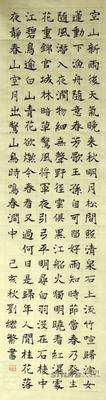 空山新雨後天氣晚來秋明月松間照清泉石上流竹喧歸浣女
蓮動下漁舟隨意春芳歇王孫自可留好雨知時節當春乃發生
隨風潛入夜潤物細無聲野徑雲俱黑江船火獨明曉看紅濕處
花重錦官城林暗草驚風將軍夜引弓平明尋白羽沒在石棱中
江碧鳥逾白山青花欲燃今春看又過何日是歸年人閒桂花落
夜靜春山空月出驚山鳥時鳴春澗中 己亥秋劉繼書